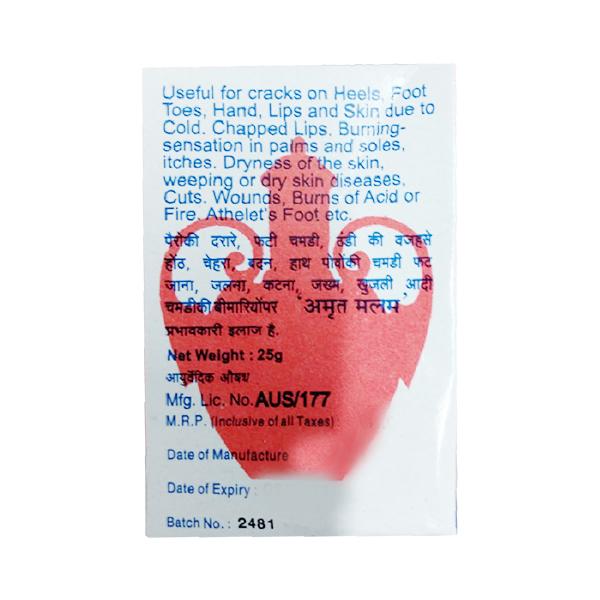 Useful for cracks on Heels, Foot
Toes, Hand, Lips and Skin due to
Cold. Chapped Lips. Burning-
sensation in palms and soles,
itches. Dryness of the skin,
weeping or dry skin diseases,
Cuts. Wounds, Burns of Acid or
Fire, Athelet's Foot etc.
पैरोकी दरारे, फटी चमडी, ठंडी की वजहसे
होंठ, चेहरा, बदन, हाथ पावोंकी चमडी फट
जाना, जलना, कटना, जख्म, खुजली आदी
चमडीकी बीमारियोंपर 'अमृत मलम'
प्रभावकारी इलाज है.
Net Weight : 25g
आयुर्वेदिक औषध
Mfg. Lic. No. AUS/177
M.R.P. (Inclusive of all Taxes) :
Date of Manufacture
Date of Expiry :
Batch No. : 2481